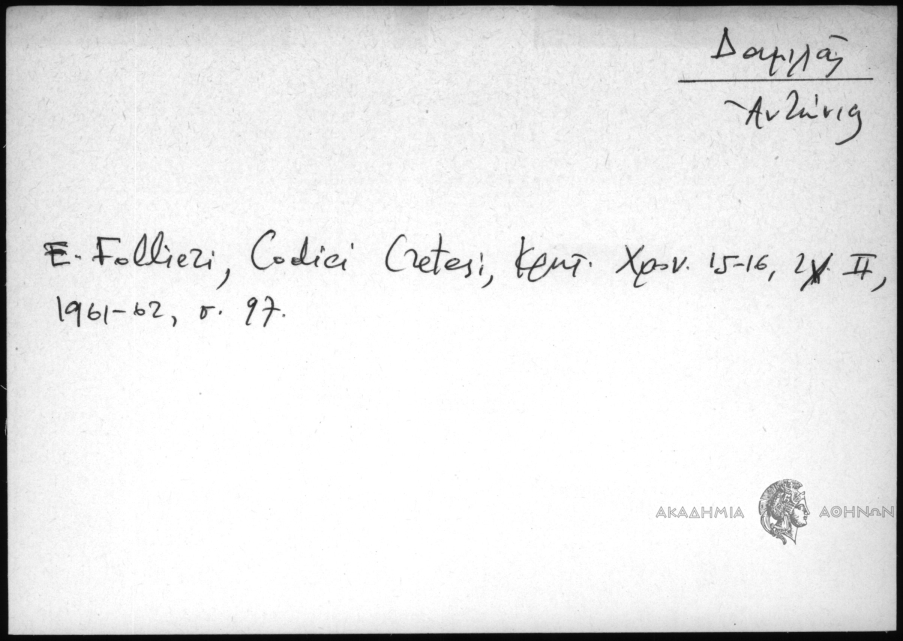 Δαμιλάς
Ἀντώνιος
E. Follieri, Codici Cretesi, Κρητ. Χρον. 15-16, τχ. II,
1961-62, σ. 97.
ΑΚΑΔΗΜΙΑ ΑΘΗΝΩΝ